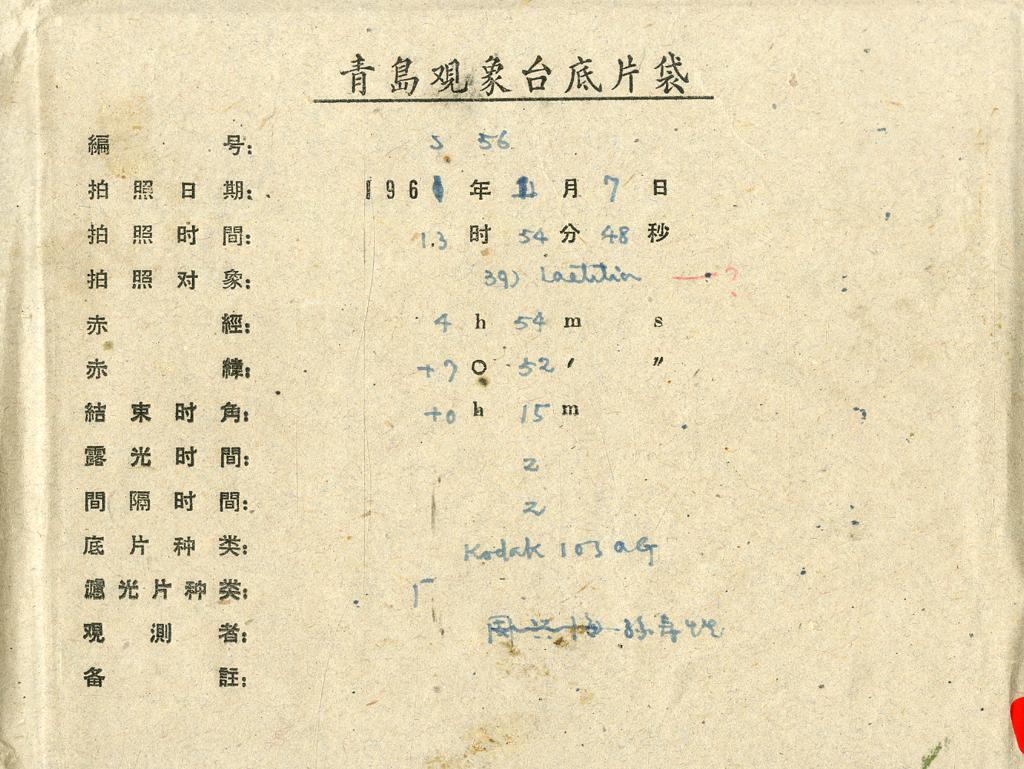 青島观象台底片袋
編号: S 56
拍照日期: 1961年11月7日
拍照时間: 13时54分48秒
拍照对象: 39) Laetitia —?
赤經: 4 h 54 m s
赤緯: +7 ○ 52 ′ ″
結束时角: +0 h 15 m
露光时間: 2
間隔时間: 2
底片种类: Kodak 103aG
濾光片种类:
观測者: 孫寿
备註: